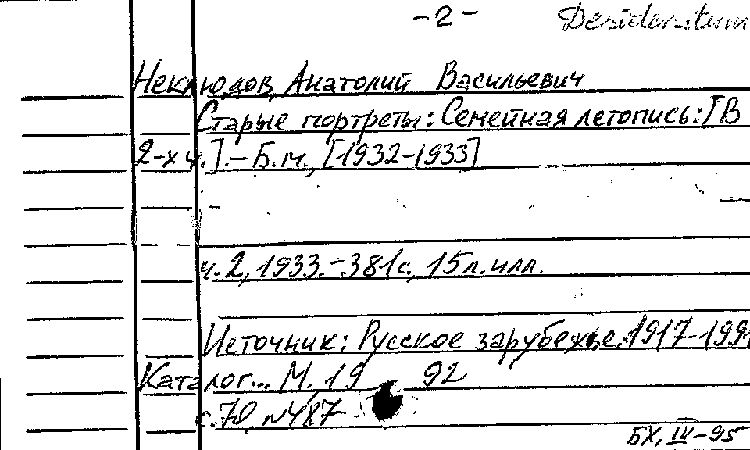 -2- Desideratum
Неклюдов, Анатолий Васильевич
Старые портреты: Семейная летопись: [В
2-х ч.].- Б.м., [1932-1933]
ч. 2, 1933.-381с., 15л. илл.
Источник: Русское зарубежье. 1917-1991
Каталог... М., 19 92
с. 70, №487
БХ, III-95